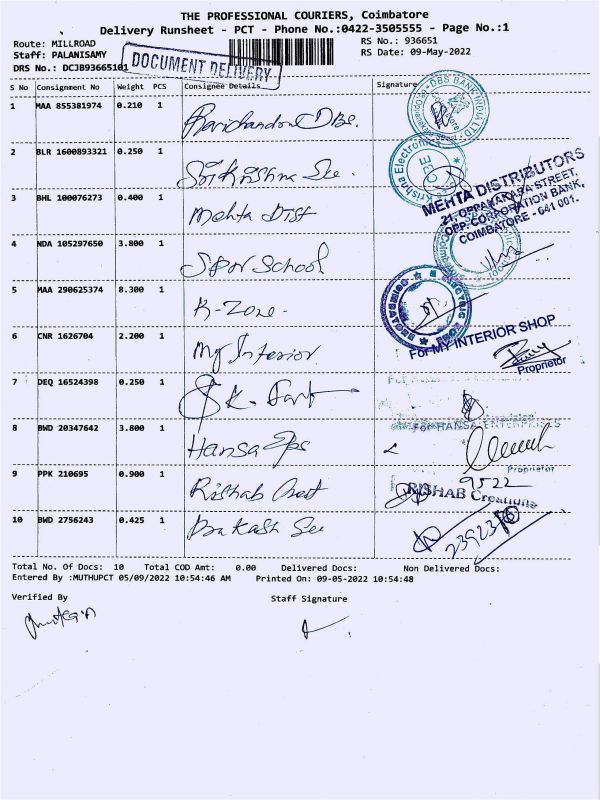 THE PROFESSIONAL COURIERS, Coimbatore
Delivery Runsheet - PCT - Phone No.:0422-3505555 - Page No.:1
Route: MILLROAD
RS No.: 936651
Staff: PALANISAMY
RS Date: 09-May-2022
DRS No.: DCJB93665101
DOCUMENT DELIVERY
S No Consignment No Weight PCS Consignee Details Signature
1 MAA 855381974 0.210 1
DBS BANK INDIA LTD
2 BLR 1600893321 0.250 1 Sri Krishna
Krishna Electronics
3 BHL 100076273 0.400 1 Mehta Dist
MEHTA DISTRIBUTORS
21, OPPANAKARA STREET,
OPP. CORPORATION BANK,
COIMBATORE - 641 001.
4 NDA 105297650 3.800 1 School
5 MAA 290625374 8.300 1 K-Zone
6 CNR 1626704 2.200 1 My Interior
For MY INTERIOR SHOP
Proprietor
7 DEQ 16524398 0.250 1
8 BWD 20347642 3.800 1 Hansa
For HANSA ENTERPRISES
Proprietor
9 PPK 210695 0.900 1 Rishab
9522
RISHAB Creations
10 BWD 2756243 0.425 1 Prakash
Total No. Of Docs: 10 Total COD Amt: 0.00 Delivered Docs: Non Delivered Docs:
Entered By :MUTHUPCT 05/09/2022 10:54:46 AM Printed On: 09-05-2022 10:54:48
Verified By Staff Signature